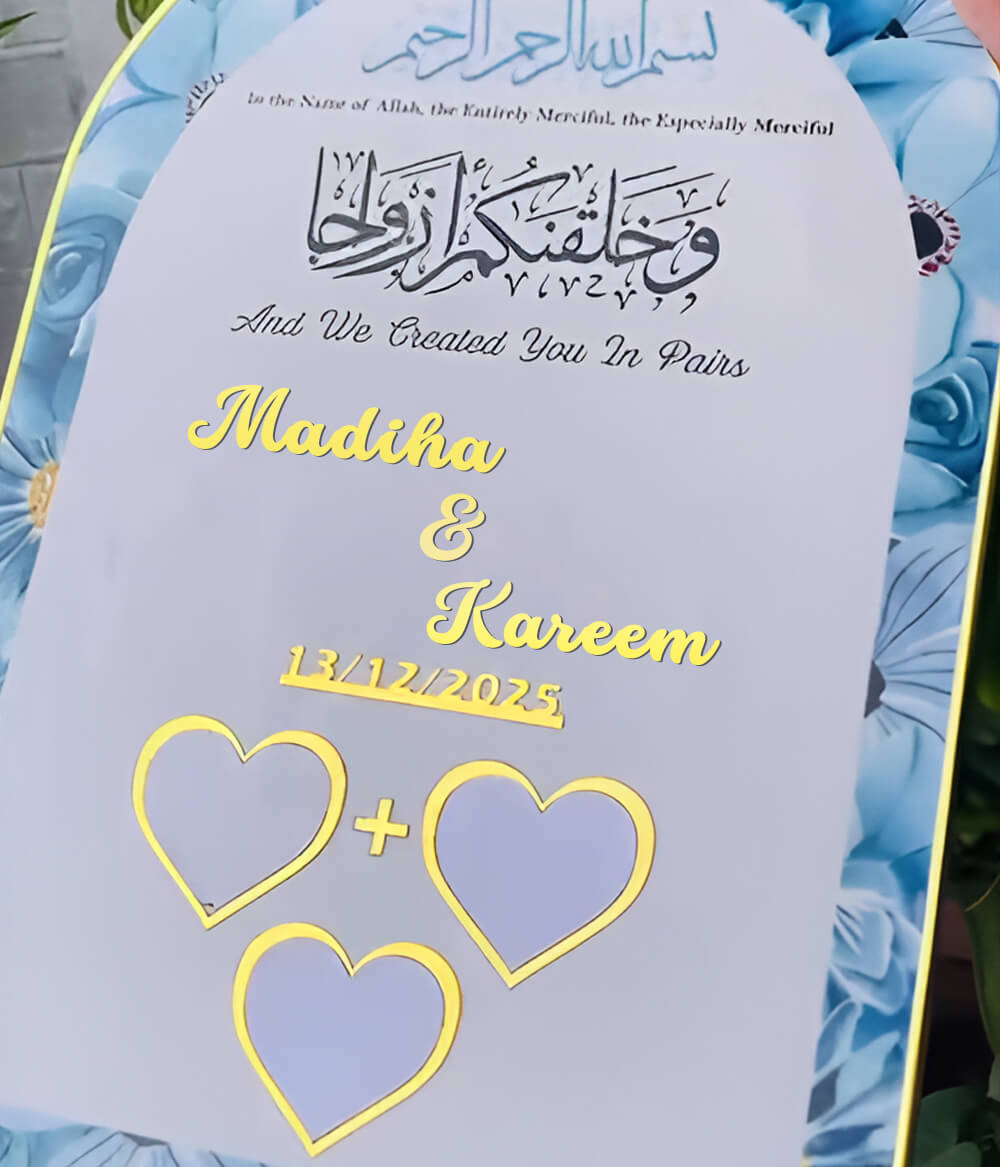 بسم الله الرحمن الرحيم
In the Name of Allah, the Entirely Merciful, the Especially Merciful
وَخَلَقْنَٰكُمْ أَزْوَٰجًا
And We Created You In Pairs
Madiha
&
Kareem
13/12/2025
+